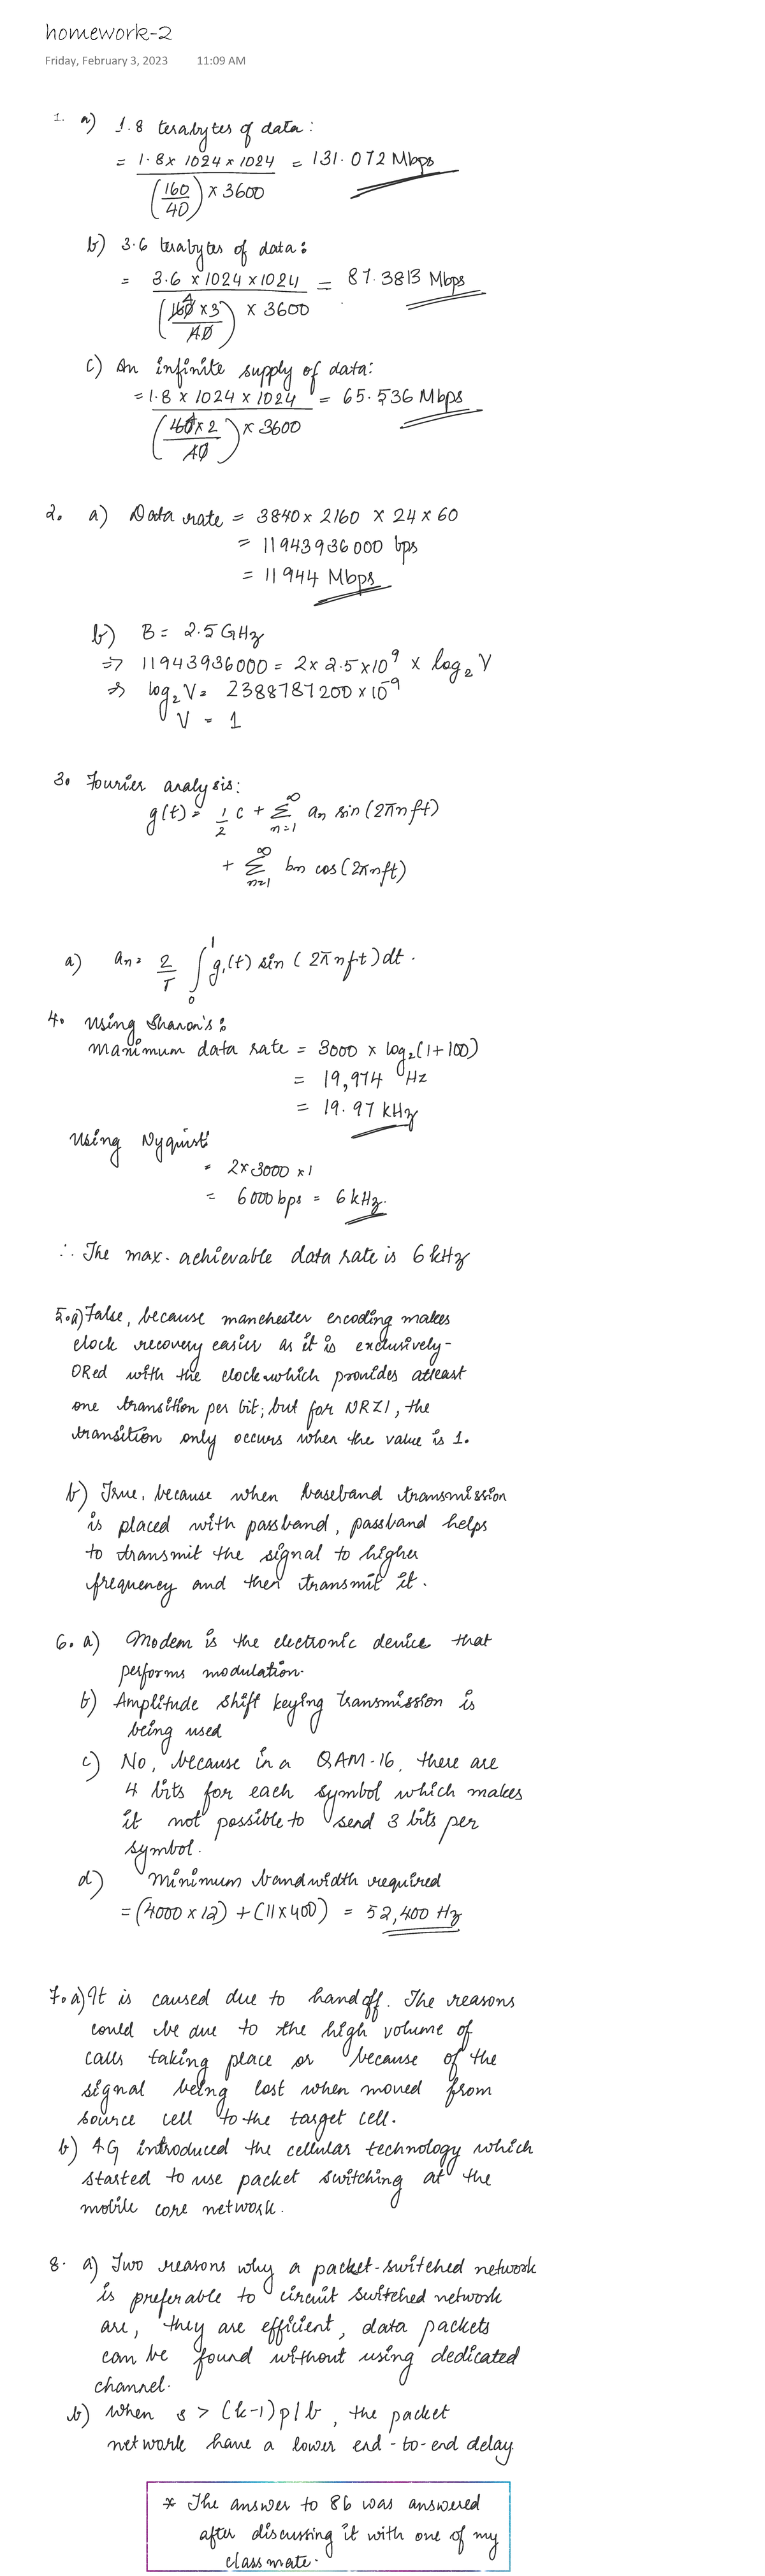 homework-2
Friday, February 3, 2023 11:09 AM
1. a) 1.8 terabytes of data:
= 1.8 x 1024 x 1024 / (160/40) x 3600 = 131.072 Mbps
b) 3.6 terabytes of data:
= 3.6 x 1024 x 1024 / (160 4 x 3/40) x 3600 = 87.3813 Mbps
c) An infinite supply of data:
= 1.8 x 1024 x 1024 / (160 4 x 2/40) x 3600 = 65.536 Mbps
2. a) Data rate = 3840 x 2160 x 24 x 60
= 11943936000 bps
= 11944 Mbps
b) B = 2.5 GHz
⇒ 11943936000 = 2 x 2.5 x 10⁹ x log₂ V
⇒ log₂ V = 2388787200 x 10⁻⁹
V = 1
3. Fourier analysis:
g(t) = 1/2 c + Σ_{n=1}^{∞} an sin (2πnft)
+ Σ_{n=1}^{∞} bn cos (2πnft)
a) an = 2/T ∫₀¹ g₁(t) sin (2πnft) dt.
4. Using Shanon's:
maximum data rate = 3000 x log₂(1+100)
= 19,974 Hz
= 19.97 kHz
Using Nyquist:
= 2 x 3000 x 1
= 6000 bps = 6 kHz.
∴ The max. achievable data rate is 6 kHz
5.a) False, because manchester encoding makes
clock recovery easier as it is exclusively-
ORed with the clock which provides atleast
one transition per bit; but for NRZI, the
transition only occurs when the value is 1.
b) True, because when baseband transmission
is placed with passband, passband helps
to transmit the signal to higher
frequency and then transmit it.
6. a) Modem is the electronic device that
performs modulation.
b) Amplitude shift keying transmission is
being used
c) No, because in a QAM-16, there are
4 bits for each symbol which makes
it not possible to send 3 bits per
symbol.
d) Minimum bandwidth required
= (4000 x 12) + (11 x 400) = 52,400 Hz
7. a) It is caused due to handoff. The reasons
could be due to the high volume of
calls taking place or because of the
signal being lost when moved from
source cell to the target cell.
b) 4G introduced the cellular technology which
started to use packet switching at the
mobile core network.
8. a) Two reasons why a packet-switched network
is preferable to circuit switched network
are, they are efficient, data packets
can be found without using dedicated
channel.
b) When s > (k-1)p/b, the packet
network have a lower end-to-end delay
* The answer to 8b was answered
after discussing it with one of my
classmate.